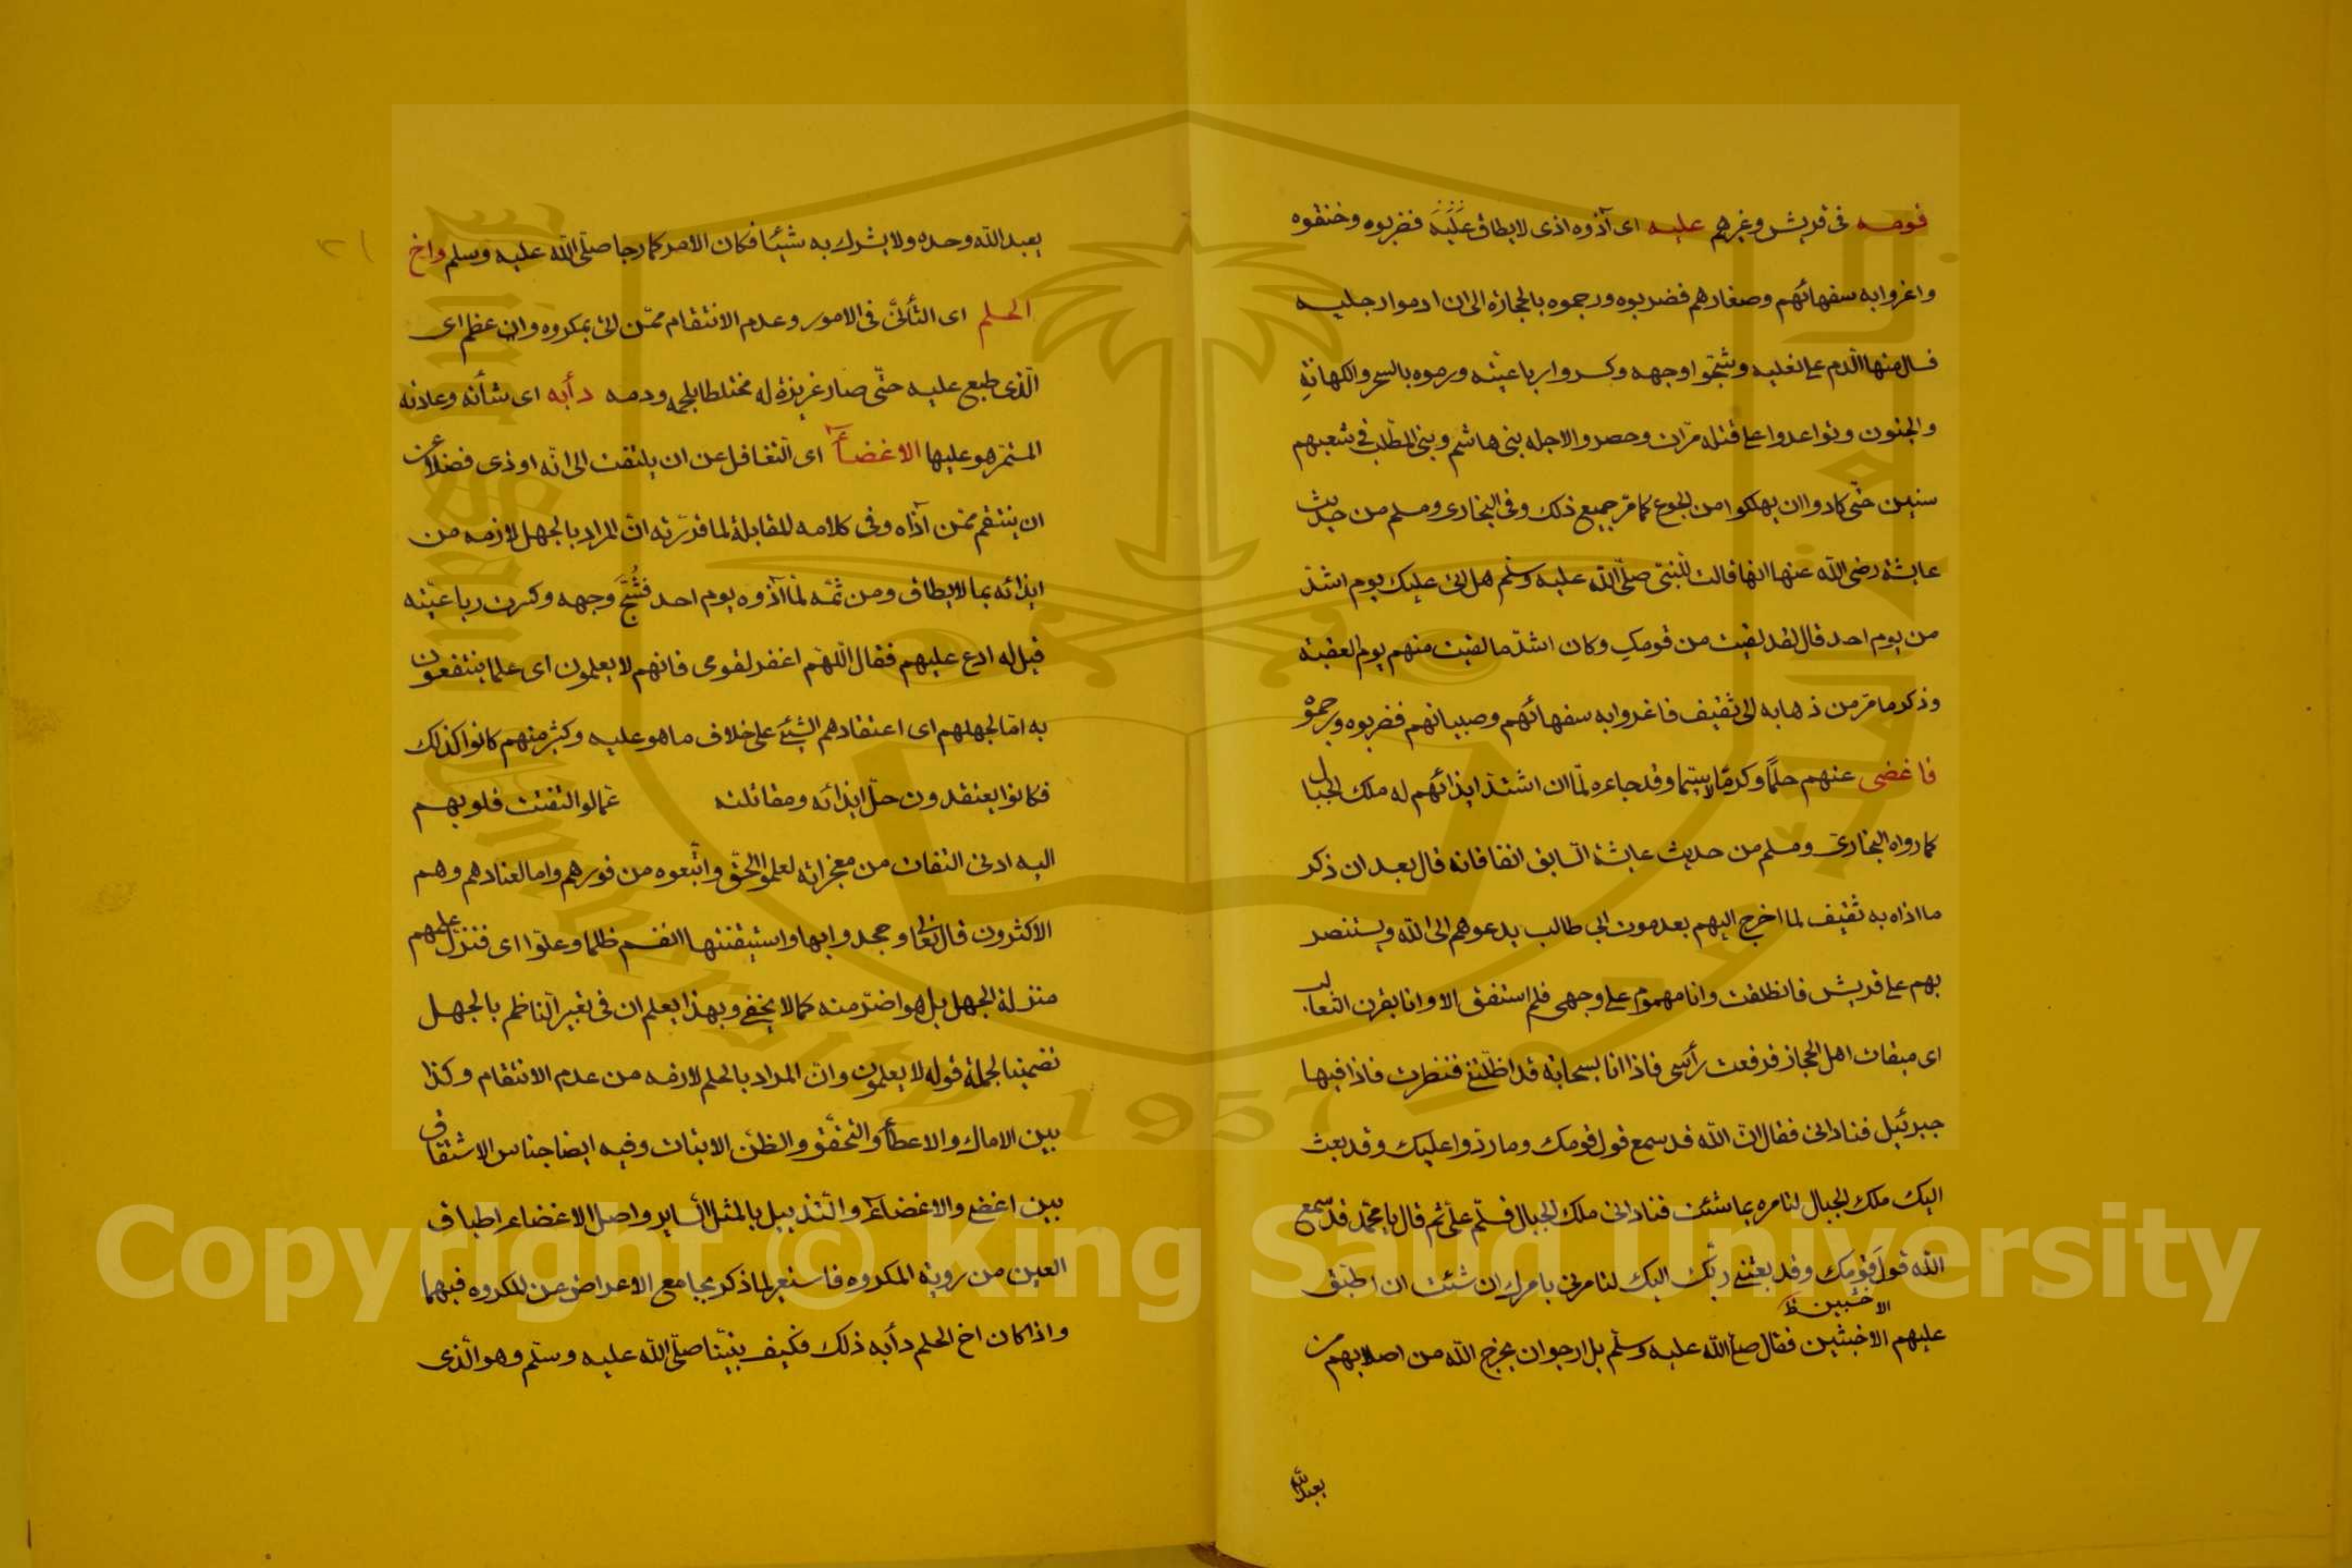 قومه فى قريش وغيرهم عليه اى آذوه اذى لايطاق عَلَيْهِ فضربوه وخنقوه
واغروا به سفهائهم وصغارهم فضربوه ورجموه بالحجارة الى ان ادموا رجليه
فسال منها الدم على نعليه وشجّوا وجهه وكسروا رباعيّته ورموه بالسحر والكهانةِ
والجنون وتواعدوا على قتله مرّات وحصروا لاجله بنى هاشم وبنى المطّلب فى شعبهم
سنين حتّى كادوا ان يهلكوا من الجوع كما مرّ جميع ذلك وفى البخارى ومسلم من حديث
عايشة رضى الله عنها انها قالت للنبىّ صلّى الله عليه وسلّم هل اتى عليك يوم اشدّ
من يوم احد قال لقد لقيت من قومكِ وكان اشدّ ما لقيت منهم يوم العقبة
وذكر ما مرّ من ذهابه الى ثقيف فاغروا به سفهائهم وصبيانهم فضربوه ورجموه
فاغضى عنهم حلمًا وكرمًا لاسيّما وقد جاءه لمّا ان اشتدّ ايذائهم له ملك الجبال
كما رواه البخارىّ ومسلم من حديث عايشة السّابق انفا فانه قال بعد ان ذكر
ما اذاه به ثقيف لما اخرج اليهم بعد موت ابى طالب يدعوهم الى الله ويستنصر
بهم على قريش فانطلقت وانا مهموم على وجهى فلم استفق الا وانا بقرن الثعالب
اى ميقات اهل الحجاز فرفعت رأسى فاذا انا بسحابة قد اظلّتنى فنظرت فاذا فيها
جبرئيل فنادانى فقال انّ الله قد سمع قول قومك وما ردّوا عليك وقد بعث
اليك ملك الجبال لتامره بما شئت فنادانى ملك الجبال فسلّم علىّ ثم قال يا محمّد قد سمع
الله قول قومك وقد بعثنى ربّك اليك لتامرنى بامرك ان شئت ان اطبق
الاخشبين ظ
عليهم الاخبثين فقال صلى الله عليه وسلّم بل ارجو ان يخرج الله من اصلابهم من
يعبد الله
يعبد الله وحده ولا يشرك به شيئا فكان الامر كما رجا صلّى الله عليه وسلم واخ
الحلم اى التأنّى فى الامور وعدم الانتقام ممّن اتى بمكروه وان عظم اى
الّذى طبع عليه حتّى صار غريزة له مختلطا بلحمه ودمه دأبه اى شأنه وعادته
المستمرّ هو عليها الاغضاء اى التغافل عن ان يلتفت الى انّه اوذى فضلا عن
ان ينتقم ممّن آذاه وفى كلامه المقابلة لما قرّرته انّ المراد بالجهل لازمه من
ايذائه بما لا يطاق ومن ثمّه لمّا آذوه يوم احد فشُجَّ وجهه وكسرت رباعيّته
قيل له ادع عليهم فقال اللّهمّ اغفر لقومى فانهم لا يعلمون اى علما ينتفعون
به امّا لجهلهم اى اعتقادهم الشئ على خلاف ما هو عليه وكثير منهم كانوا كذلك
فكانوا يعتقدون حلّ ايذائه ومقاتلته ثم لو التفتت قلوبهم
اليه ادنى التفات من معجزاته لعلموا الحقّ واتّبعوه من فورهم واما لعنادهم وهم
الاكثرون قال تعالى وجحدوا بها واستيقنتها انفسهم ظلما وعلوّا اى فتنزل علمهم
منزلة الجهل بل هو اضرّ منه كما لا يخفى وبهذا يعلم ان فى تعبير النّاظم بالجهل
تضمينا لجملة قوله لا يعلمون وانّ المراد بالحلم لازمه من عدم الانتقام وكذا
بين الامال والاعطاء والتحقّق والظنّ الاثبات وفيه ايضا جناس الاشتقاق
بين اغضى والاغضاء والتذييل بالمثل السّاير واصل الاغضاء اطباق
العين من روية المكروه فاستعير لما ذكر بجامع الاعراض عن المكروه فيهما
واذا كان اخ الحلم دأبه ذلك فكيف بنبيّنا صلّى الله عليه وسلّم وهو الّذى
٢١
King Saud University
1957
Copyright © King Saud University